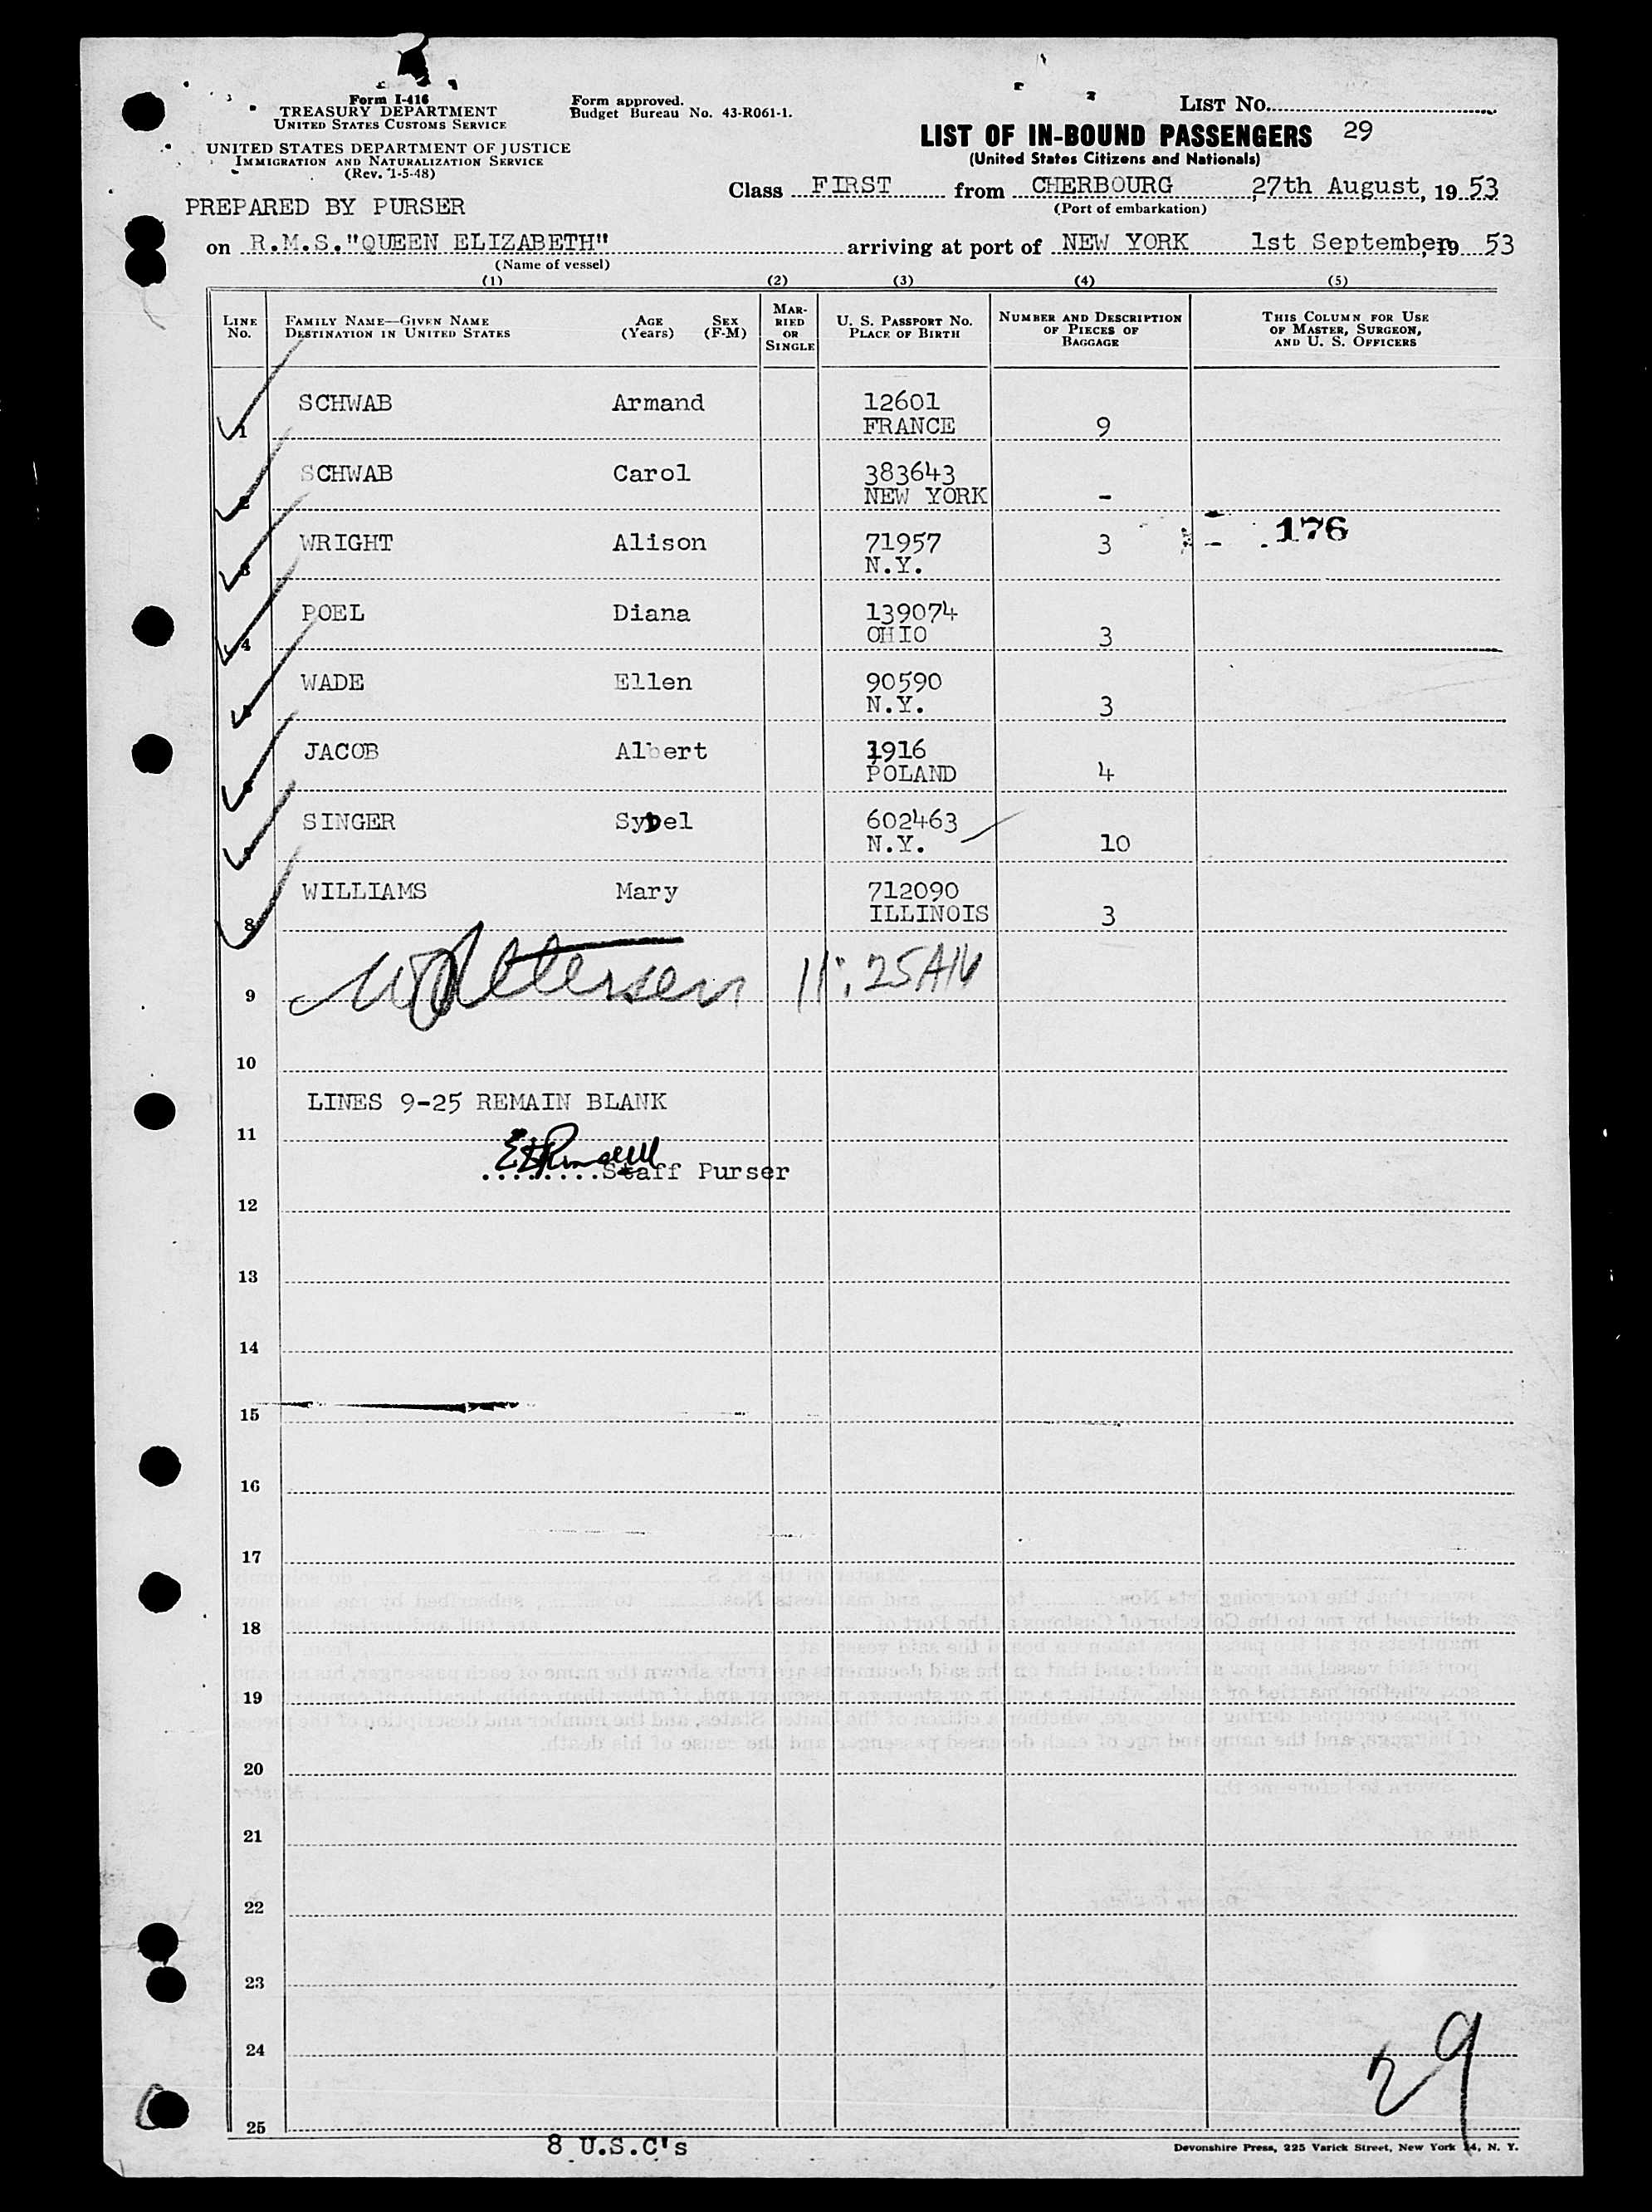 Form I-416
TREASURY DEPARTMENT
UNITED STATES CUSTOMS SERVICE
UNITED STATES DEPARTMENT OF JUSTICE
IMMIGRATION AND NATURALIZATION SERVICE
(Rev. 1-5-48)
Form approved.
Budget Bureau No. 43-R061-1.
LIST NO.
LIST OF IN-BOUND PASSENGERS 29
(United States Citizens and Nationals)
Class FIRST from CHERBOURG, 27th August, 1953
(Port of embarkation)
PREPARED BY PURSER
on R.M.S."QUEEN ELIZABETH" arriving at port of NEW YORK 1st September, 19 53
(Name of vessel)
(1) (2) (3) (4) (5)
LINE NO. FAMILY NAME—GIVEN NAME DESTINATION IN UNITED STATES AGE (Years) SEX (F-M) MARRIED OR SINGLE U. S. PASSPORT NO. PLACE OF BIRTH NUMBER AND DESCRIPTION OF PIECES OF BAGGAGE THIS COLUMN FOR USE OF MASTER, SURGEON, AND U. S. OFFICERS
SCHWAB Armand 12601
1 FRANCE 9
SCHWAB Carol 383643
2 NEW YORK -
176
WRIGHT Alison 71957 3 -
3 N.Y.
POEL Diana 139074
4 OHIO 3
WADE Ellen 90590
N.Y. 3
JACOB Albert 1916
POLAND 4
SINGER Sybel 602463
N.Y. 10
WILLIAMS Mary 712090
8 ILLINOIS 3
9 11:25AM
10
LINES 9-25 REMAIN BLANK
11
........Staff Purser
12
13
14
15
16
17
18
19
20
21
22
23
24
29
25
8 U.S.C's
Devonshire Press, 225 Varick Street, New York 14, N. Y.